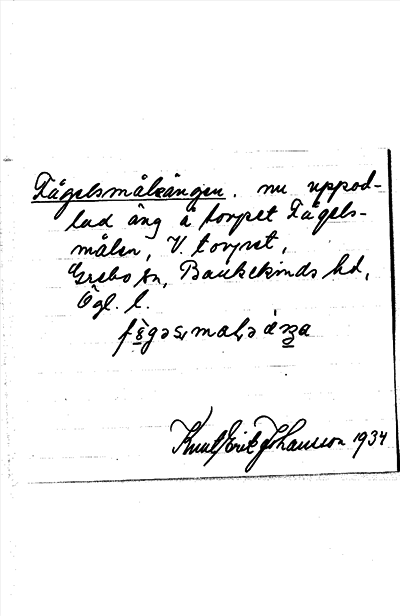 Fågelsmålsängen. nu uppod-
lad äng å torpet Fågels-
målen, V. torpet,
Grebo sn, Bankekinds hd,
Ögl. l.
Knut Erik Johansson 1934